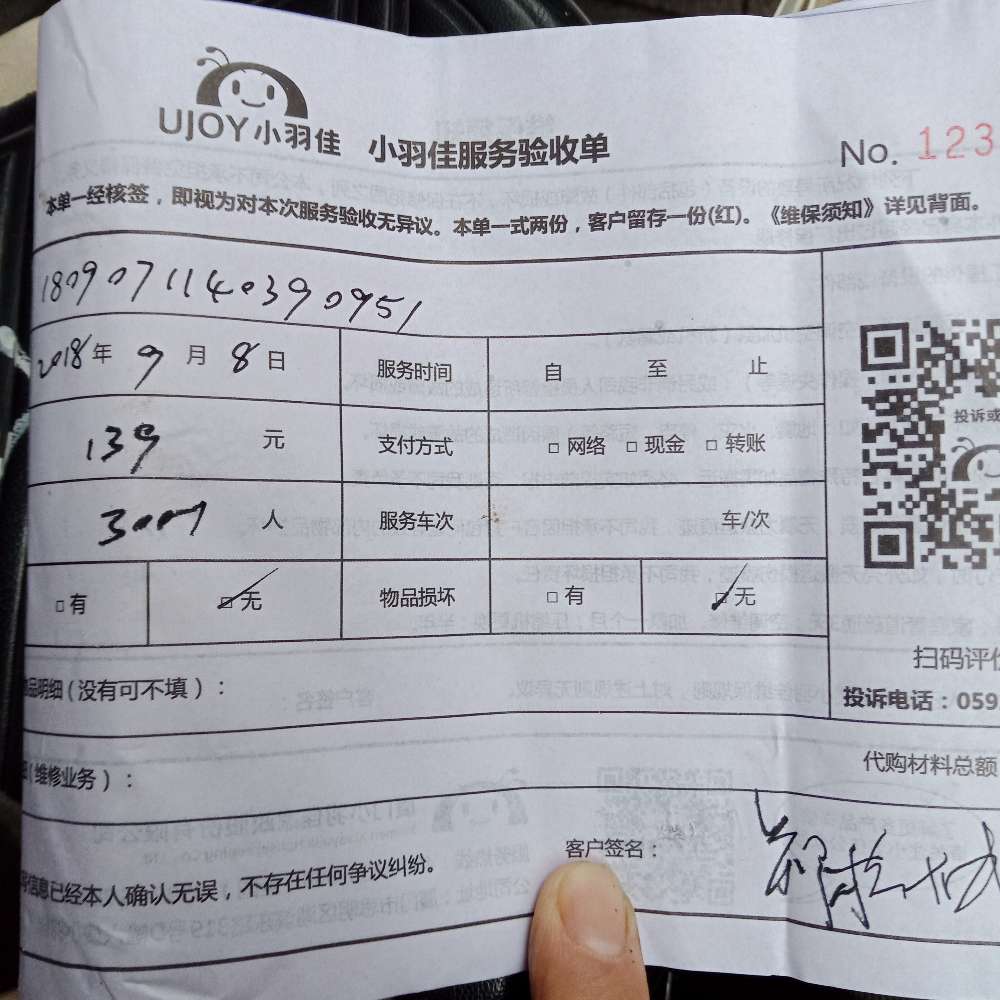 UJOY小羽佳 小羽佳服务验收单 No. 123
本单一经核签，即视为对本次服务验收无异议。本单一式两份，客户留存一份(红)。《维保须知》详见背面。
1809071140390951
2018年9月8日 服务时间 自 至 止
139 元 支付方式 □ 网络 □ 现金 □ 转账
人 服务车次 车/次
□ 有 □ 无 物品损坏 □ 有 □ 无
投诉或
扫码评价
品明细 (没有可不填)：
投诉电话：059
(维修业务)：
代购材料总额
客户签名：
信息已经本人确认无误，不存在任何争议纠纷。